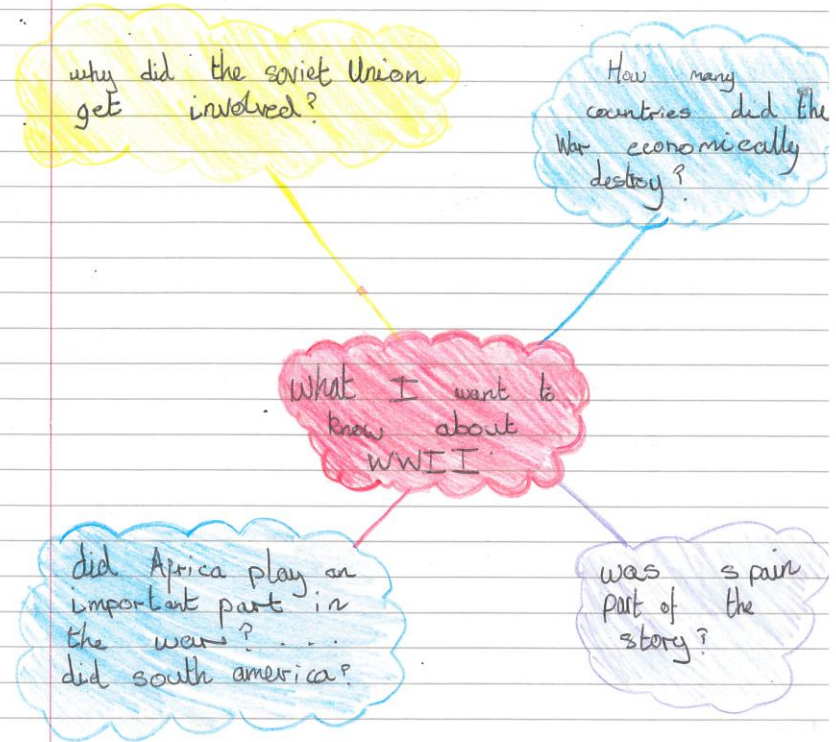 why did the soviet Union
get involved?
How many
countries did the
War economically
destroy?
What I want to
know about
WWII.
did Africa play an
important part in
the war? . . .
did south america?
was spain
part of the
story?